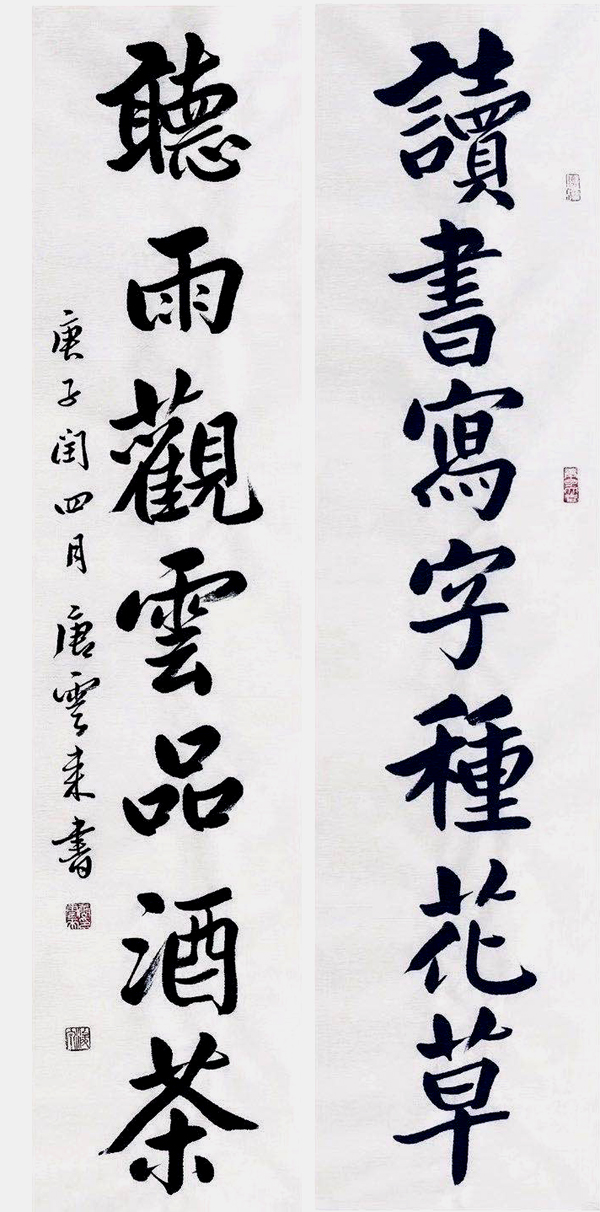 讀書寫字種花草
聽雨觀雲品酒茶
庚子閏四月唐雲来書